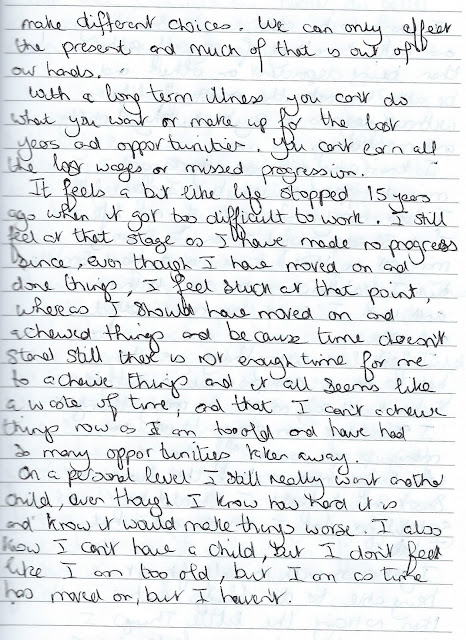 make different choices. We can only affect
the present and much of that is out of
our hands.
With a long term illness you can't do
what you want or make up for the lost
years and opportunities. You can't earn all
the lost wages or missed progression.
It feels a bit like life stopped 15 years
ago when it got too difficult to work. I still
feel at that stage as I have made no progress
since, even though I have moved on and
done things, I feel stuck at that point,
whereas I should have moved on and
acheived things and because time doesn't
stand still there is not enough time for me
to acheive things and it all seems like
a waste of time, and that I can't acheive
things now as I am too old and have had
so many opportunities taken away.
On a personal level I still really want another
child, even though I know how hard it is
and know it would make things worse. I also
know I can't have a child, but I don't feel
like I am too old, but I am as time
has moved on, but I haven't.